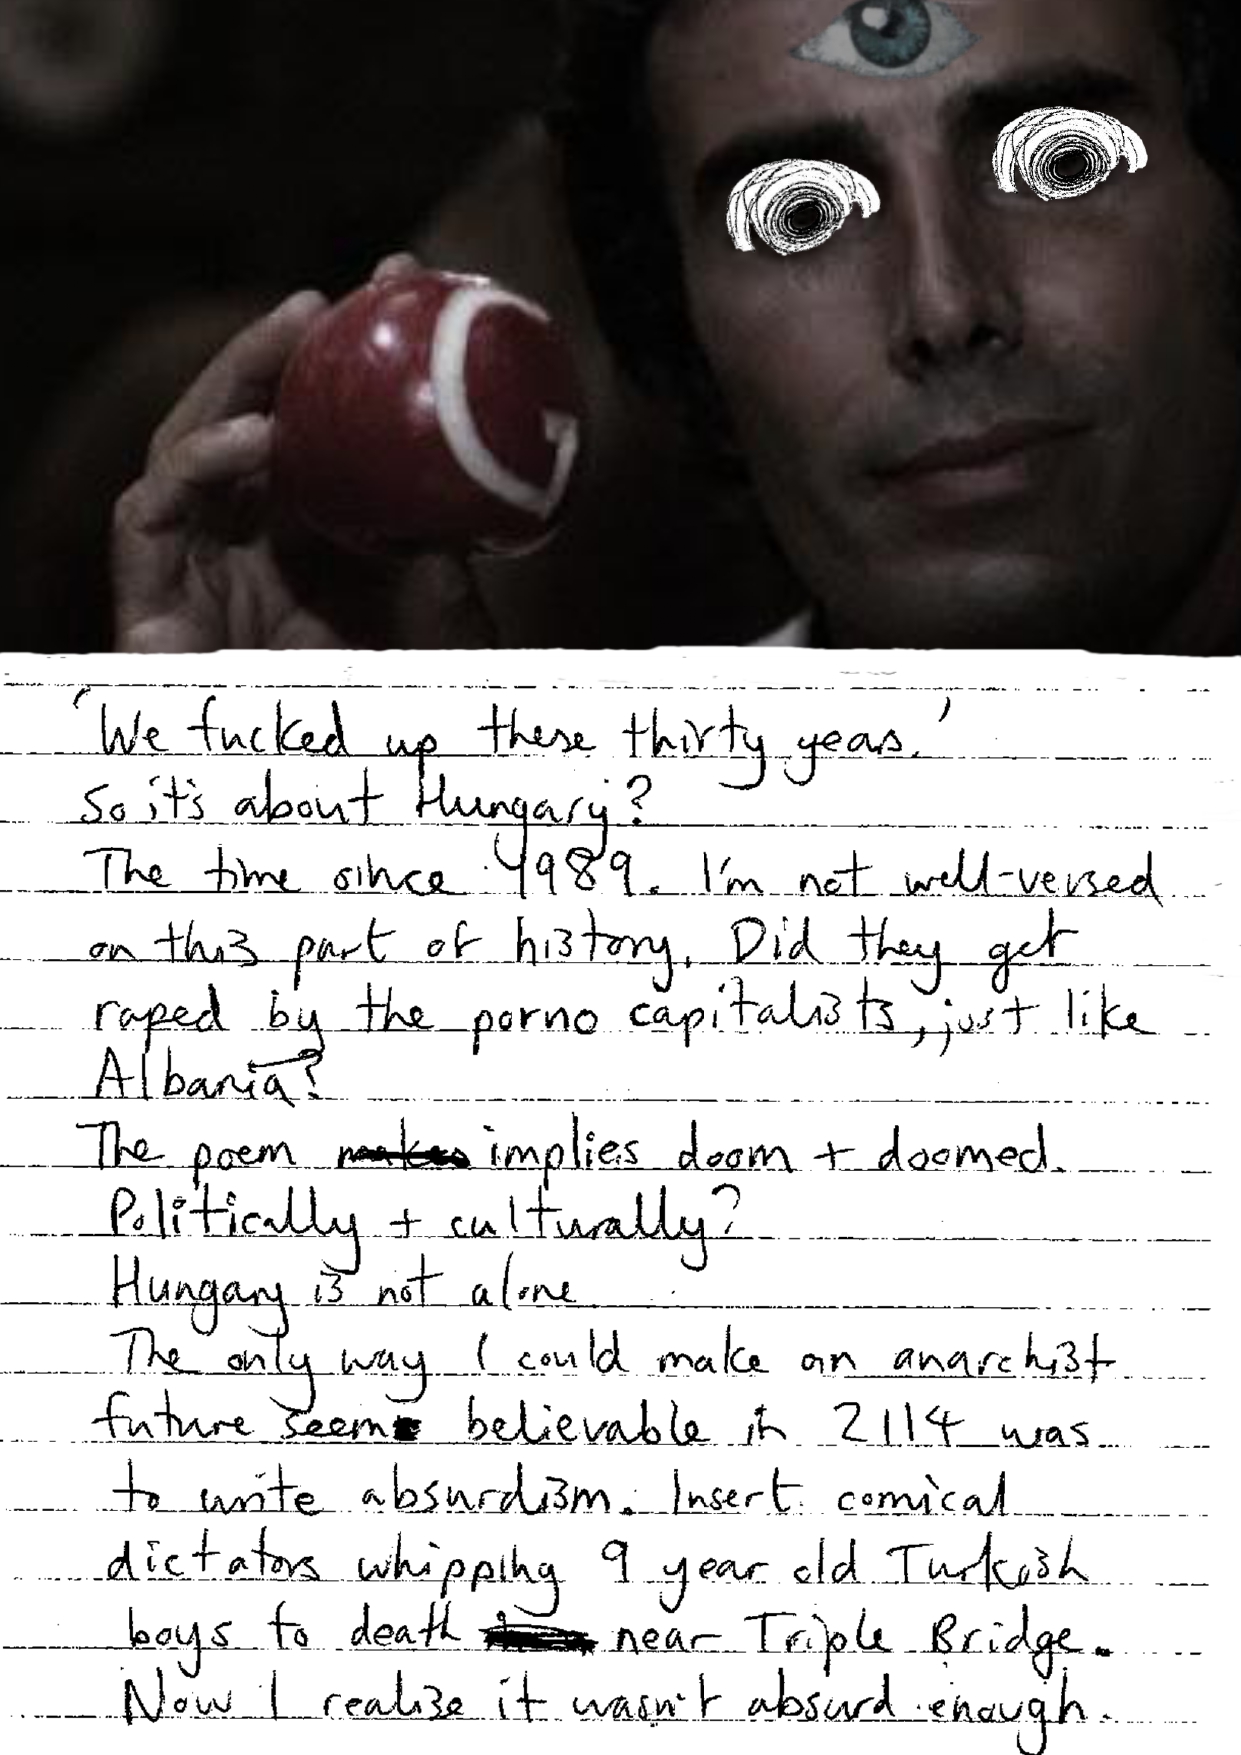 'We fucked up these thirty years.'
So it's about Hungary?
The time since 1989. I'm not well-versed
on this part of history. Did they get
raped by the porno capitalists, just like
Albania?
The poem implies doom + doomed.
Politically + culturally?
Hungary is not alone
The only way I could make an anarchist
future seem believable in 2114 was
to write absurdism. Insert comical
dictators whipping 9 year old Turkish
boys to death near Triple Bridge.
Now I realize it wasn't absurd enough.